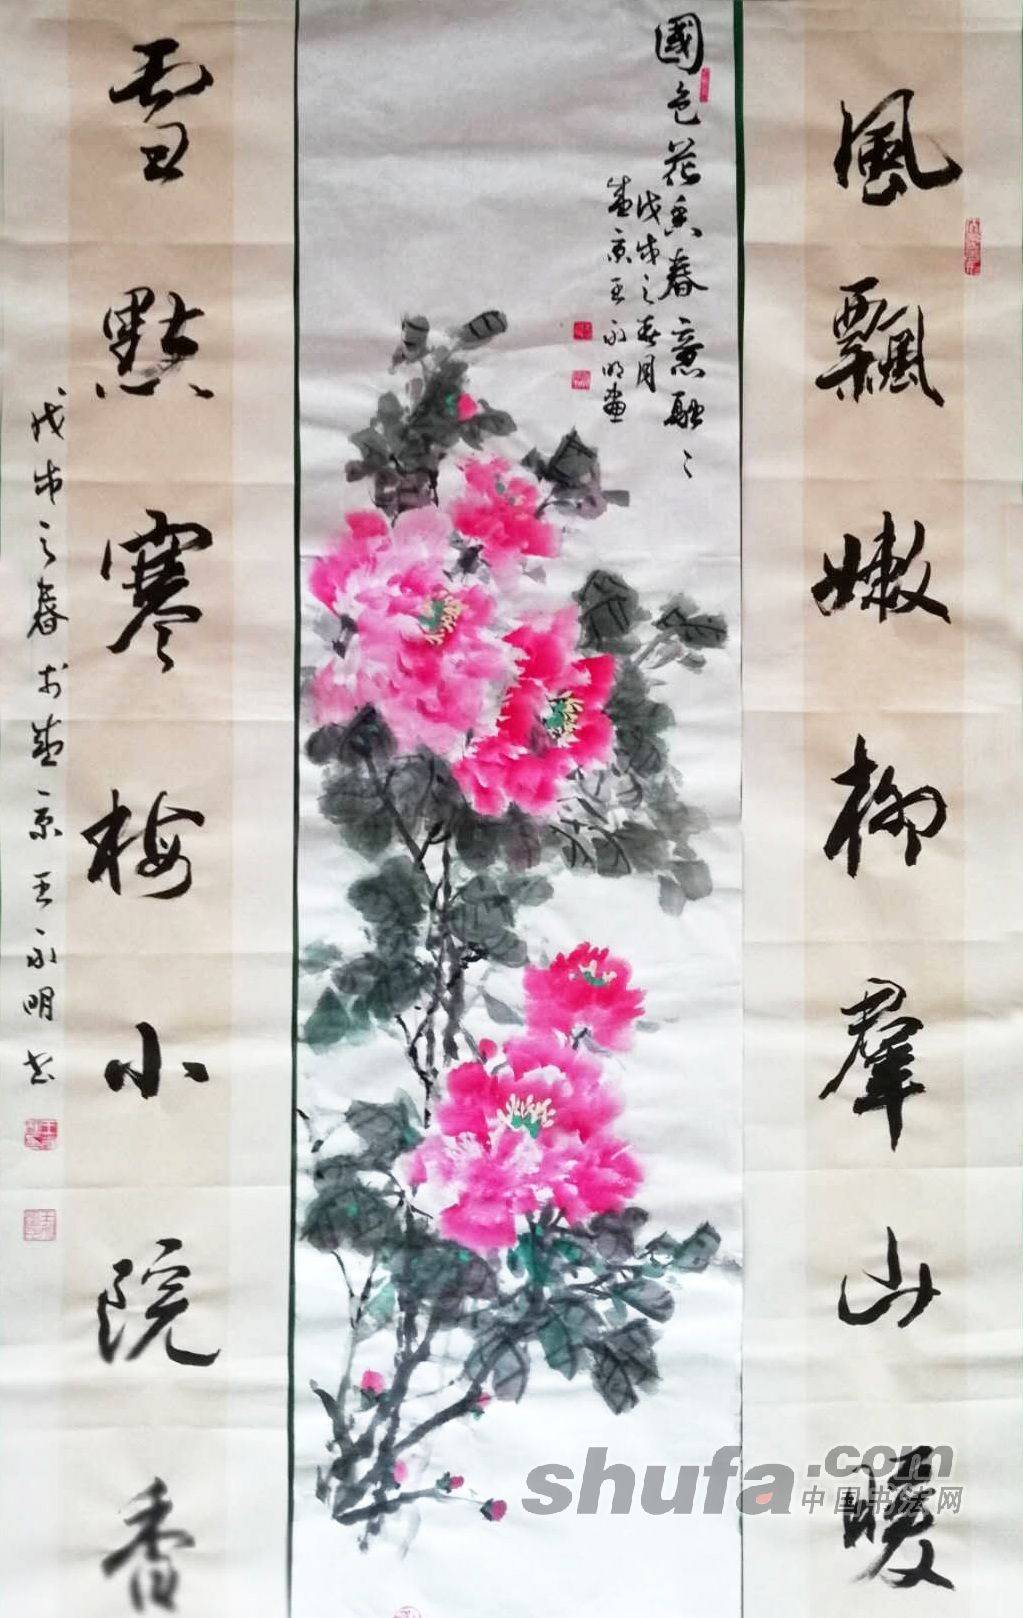 風飄嫩柳羣山暖
國色花香春意融〻
戊戌之春月
盛京王永明畫
雪點寒梅小院香
戊戌之春於盛京王永明書
shufa.com
中国书法网